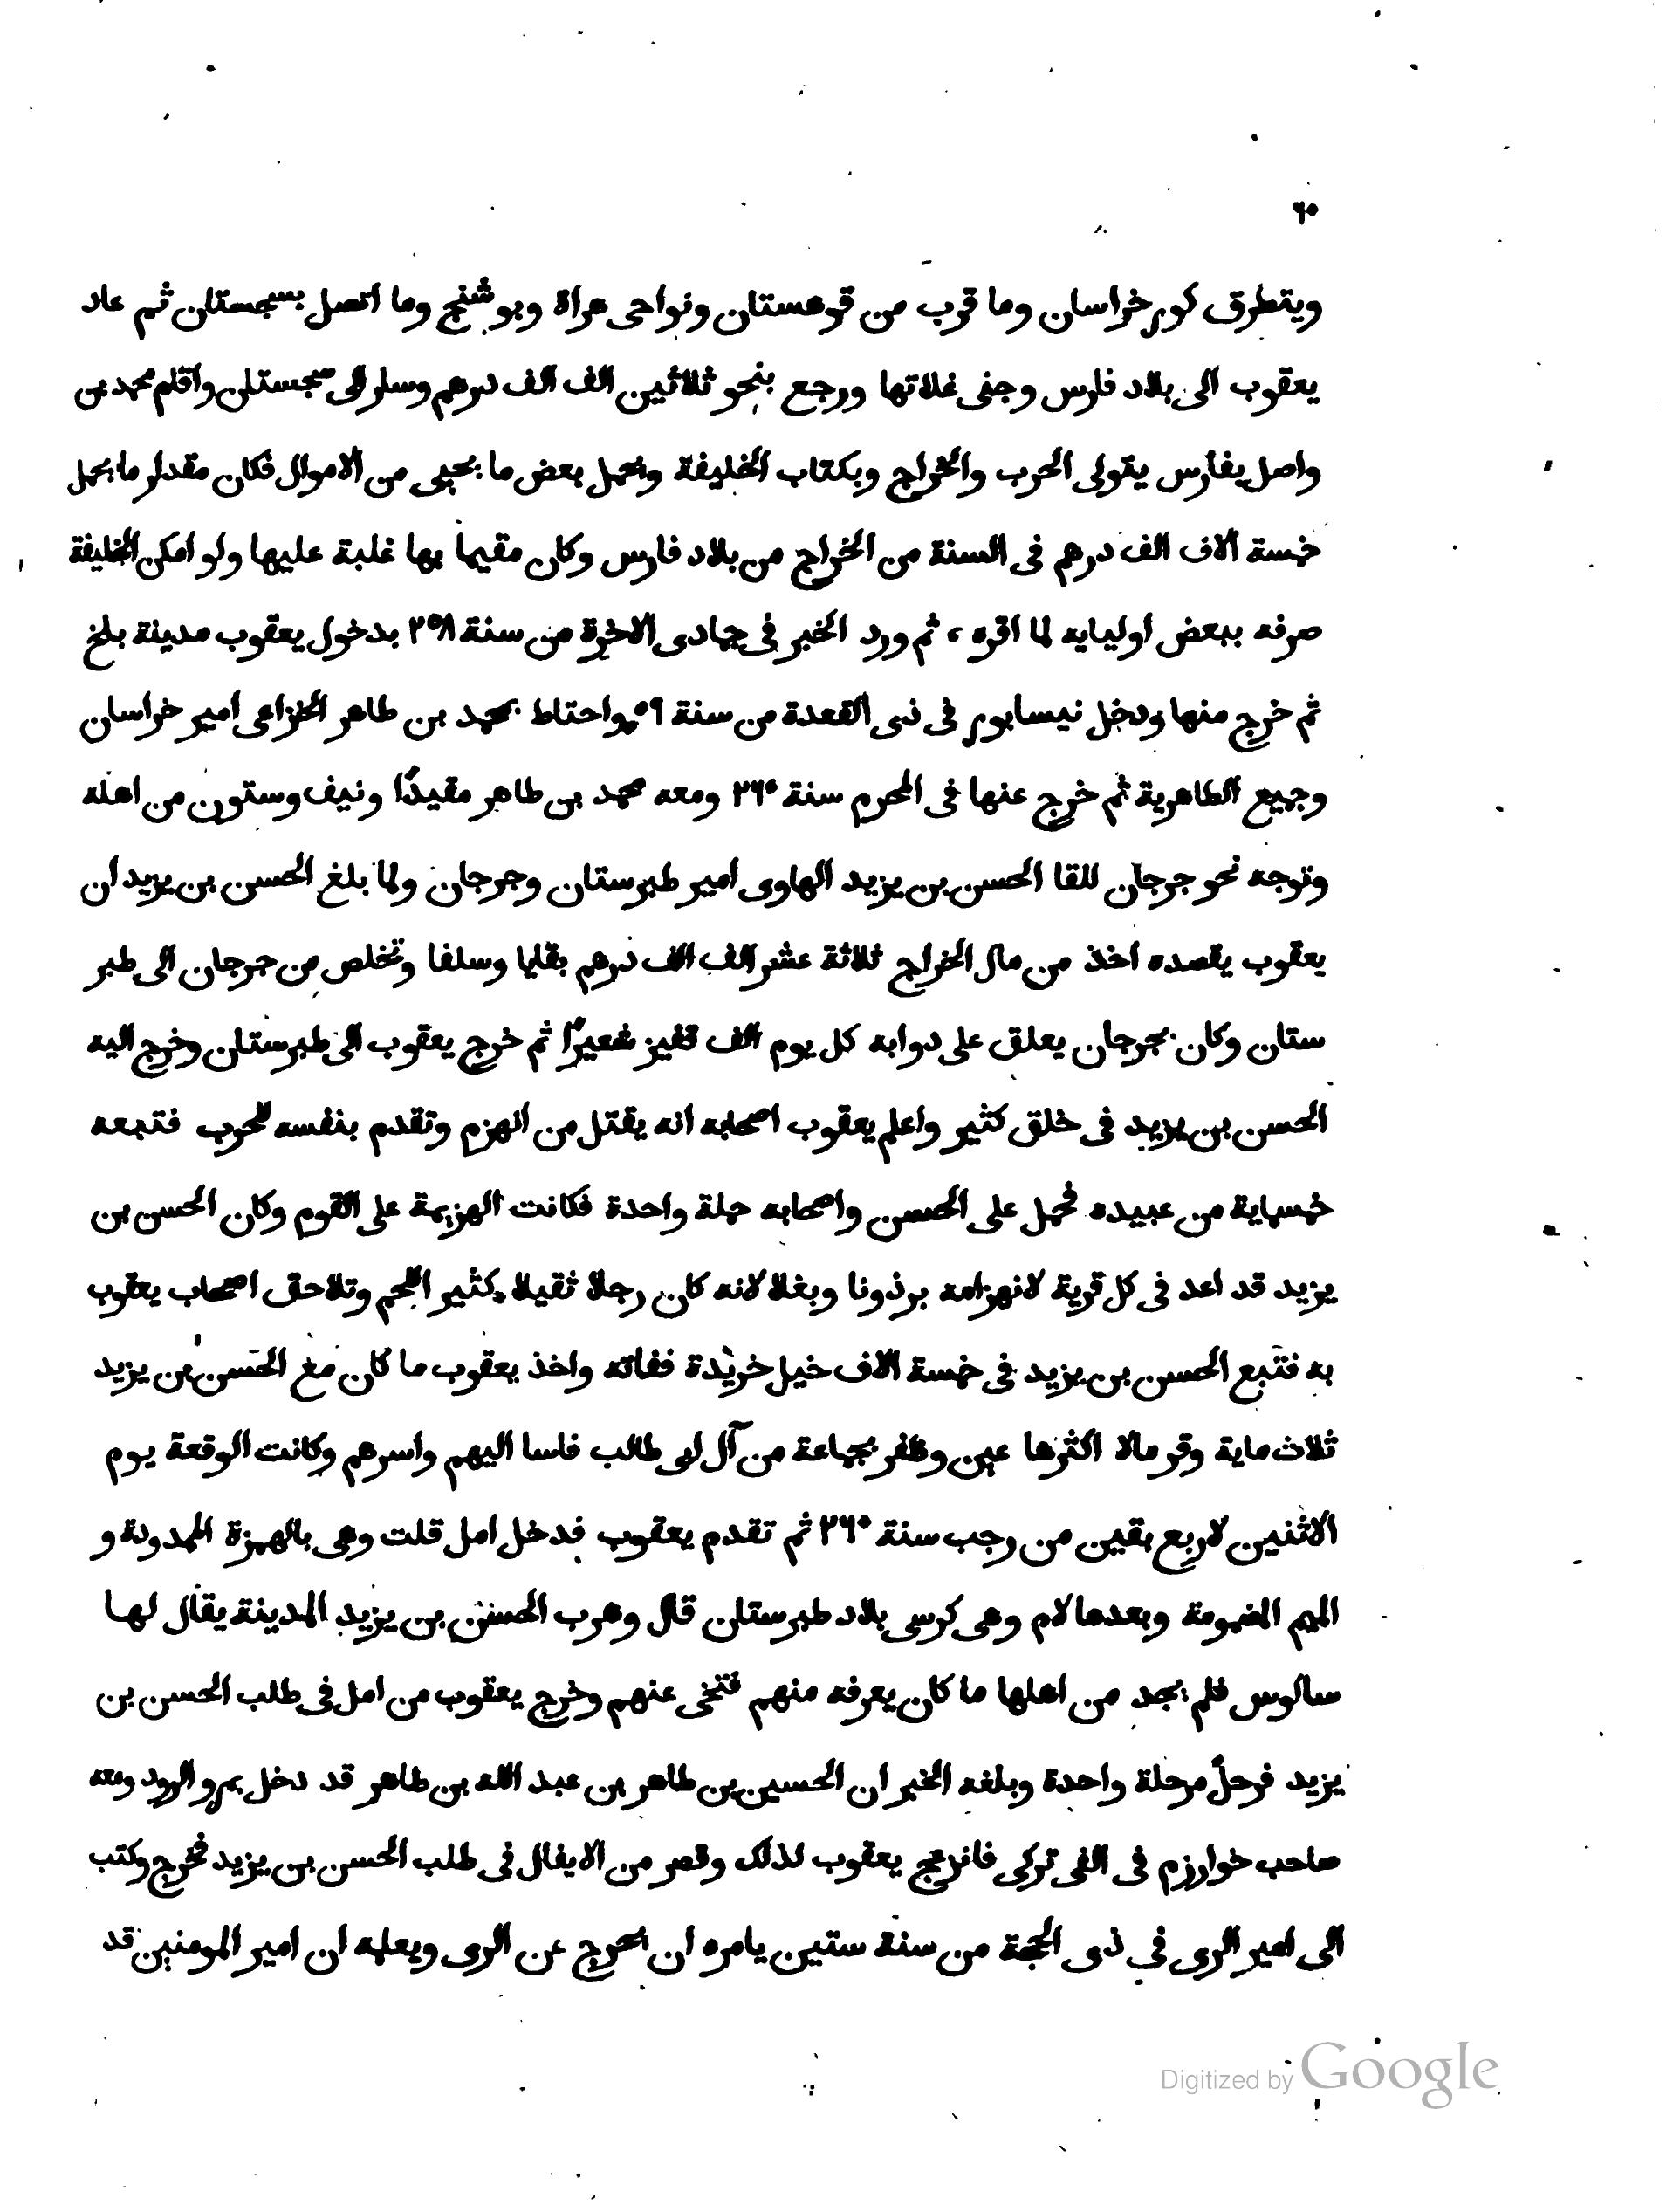 ٦٠
ويتطرق كور خراسان وما قرب من قوهستان ونواحى هراة وبوشنج وما اتصل بسجستان ثم عاد
يعقوب الى بلاد فارس وجنى غلاتها ورجع بنحو ثلاثين الف الف درهم وسار الى سجستان واقام محمد بن
واصل بفارس يتولى الحرب والخراج وبكتاب الخليفة ويحمل بعض ما يجبى من الاموال فكان مقدار ما يحمل
خمسة الاف الف درهم فى السنة من الخراج من بلاد فارس وكان مقيما بها غلبة عليها ولو امكن الخليفة
صرفه ببعض اوليايه لما اقره ، ثم ورد الخبر فى جمادى الاخرة من سنة ٢٥٨ بدخول يعقوب مدينة بلخ
ثم خرج منها ودخل نيسابور فى ذى القعدة من سنة ٥٩ واحتاط بمحمد بن طاهر الخزاعى امير خراسان
وجميع الطاهرية ثم خرج عنها فى المحرم سنة ٢٦٠ ومعه محمد بن طاهر مقيدًا ونيف وستون من اهله
وتوجه نحو جرجان للقا الحسن بن يزيد الهاوى امير طبرستان وجرجان ولما بلغ الحسن بن يزيد ان
يعقوب يقصده اخذ من مال الخراج ثلاثة عشر الف الف درهم بقايا وسلفا وتخلص من جرجان الى طبر
ستان وكان بجرجان يعلق على دوابه كل يوم الف قفيز شعيرًا ثم خرج يعقوب الى طبرستان وخرج اليه
الحسن بن يزيد فى خلق كثير واعلم يعقوب اصحابه انه يقتل من انهزم وتقدم بنفسه للحرب فتبعه
خمسماية من عبيده فحمل على الحسن واصحابه حملة واحدة فكانت الهزيمة على القوم وكان الحسن بن
يزيد قد اعد فى كل قرية لانهزامه برذونا وبغلا لانه كان رجلا ثقيلا كثير اللحم وتلاحق اصحاب يعقوب
به فتبع الحسن بن يزيد فى خمسة الاف خيل خريدة ففاته واخذ يعقوب ما كان مع الحسن بن يزيد
ثلاث ماية وقر مالا اكثرها عين وظفر بجماعة من آل ابى طالب فاسا اليهم واسرهم وكانت الوقعة يوم
الاثنين لاربع بقين من رجب سنة ٢٦٠ ثم تقدم يعقوب فدخل امل قلت وهى بالهمزة الممدودة و
الميم المضمومة وبعدها لام وهى كرسى بلاد طبرستان قال وهرب الحسن بن يزيد المدينة يقال لها
سالوس فلم يجد من اهلها ما كان يعرفه منهم فتنحى عنهم وخرج يعقوب من امل فى طلب الحسن بن
يزيد فرحل مرحلة واحدة وبلغه الخبر ان الحسين بن طاهر بن عبد الله بن طاهر قد دخل بمرو الرود ومعه
صاحب خوارزم فى الفى تركى فانزعج يعقوب لذلك وقصر من الايغال فى طلب الحسن بن يزيد فخرج وكتب
الى امير الرى فى ذى الحجة من سنة ستين يامره ان يخرج عن الرى ويعلمه ان امير المومنين قد
Digitized by Google